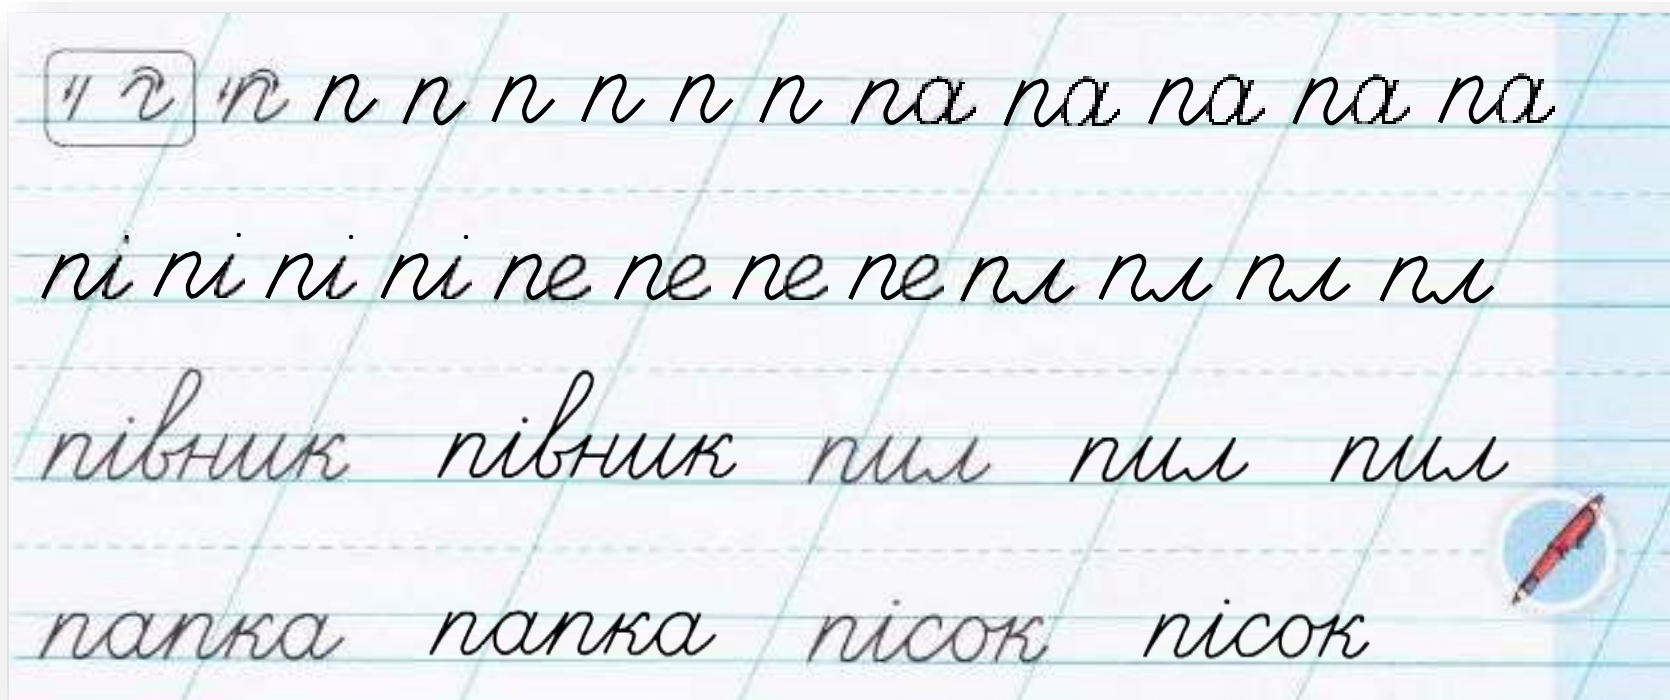 п п п п п п п па па па па па
пі пі пі пі пе пе пе пе пл пл пл пл
півник півник пил пил пил
папка папка пісок пісок